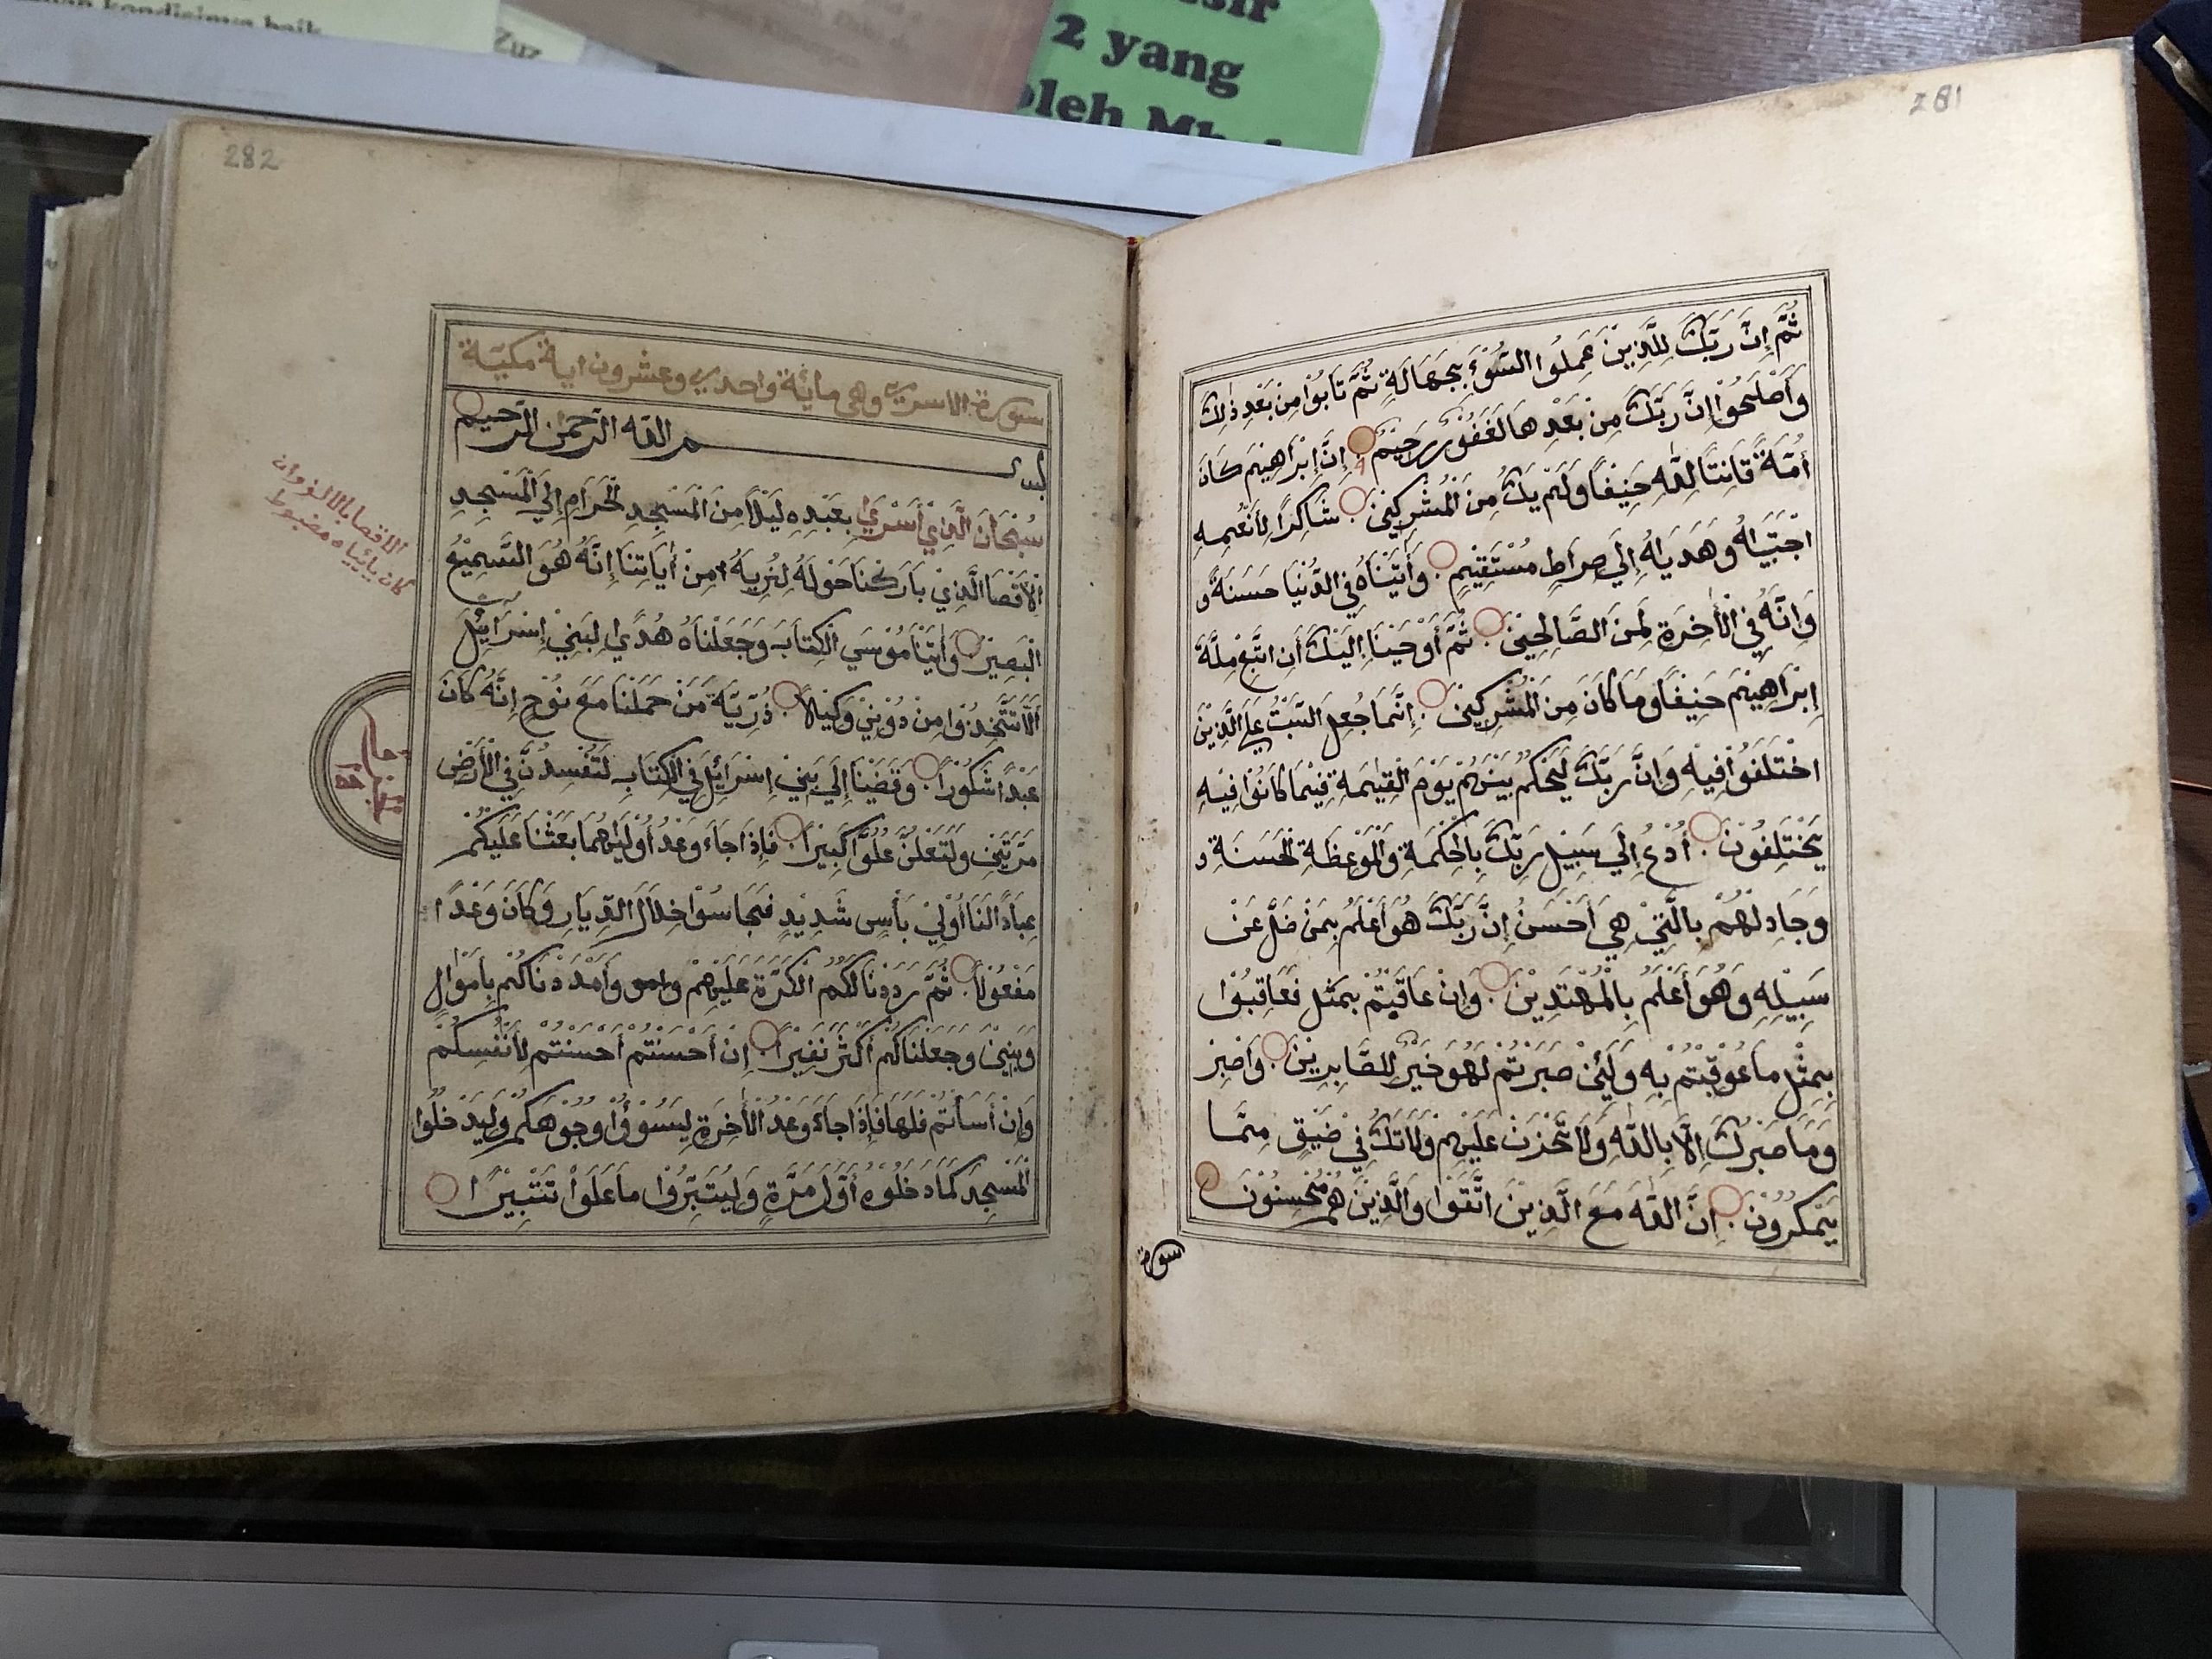 281
ثُمَّ إِنَّ رَبَّكَ لِلَّذِيْنَ عَمِلُوا السُّوْءَ بِجَهَالَةٍ ثُمَّ تَابُوْا مِنْ بَعْدِ ذٰلِكَ
وَأَصْلَحُوْا إِنَّ رَبَّكَ مِنْ بَعْدِهَا لَغَفُوْرٌ رَحِيْمٌ إِنَّ إِبْرَاهِيْمَ كَانَ
أُمَّةً قَانِتًا لِلّٰهِ حَنِيْفًا وَلَمْ يَكُ مِنَ الْمُشْرِكِيْنَ شَاكِرًا لِأَنْعُمِهِ
اجْتَبَاهُ وَهَدَيٰهُ إِلَي صِرَاطٍ مُسْتَقِيْمٍ وَأٰتَيْنَاهُ فِي الدُّنْيَا حَسَنَةً و
وَإِنَّهُ فِي الْأٰخِرَةِ لَمِنَ الصَّالِحِيْنَ ثُمَّ أَوْحَيْنَا إِلَيْكَ أَنِ اتَّبِعْ مِلَّةَ
إِبْرَاهِيْمَ حَنِيْفًا وَمَا كَانَ مِنَ الْمُشْرِكِيْنَ إِنَّمَا جُعِلَ السَّبْتُ عَلَي الَّذِيْنَ
اخْتَلَفُوْا فِيْهِ وَإِنَّ رَبَّكَ لَيَحْكُمُ بَيْنَهُمْ يَوْمَ الْقِيٰمَةِ فِيْمَا كَانُوْا فِيْهِ
يَخْتَلِفُوْنَ أُدْعُ إِلَي سَبِيْلِ رَبِّكَ بِالْحِكْمَةِ وَالْمَوْعِظَةِ الْحَسَنَةِ و
وَجَادِلْهُمْ بِالَّتِيْ هِيَ أَحْسَنُ إِنَّ رَبَّكَ هُوَ أَعْلَمُ بِمَنْ ضَلَّ عَنْ
سَبِيْلِهِ وَهُوَ أَعْلَمُ بِالْمُهْتَدِيْنَ وَإِنْ عَاقَبْتُمْ بِمِثْلِ فَعَاقِبُوْا
بِمِثْلِ مَا عُوْقِبْتُمْ بِهِ وَلَئِنْ صَبَرْتُمْ لَهُوَ خَيْرٌ لِلصَّابِرِيْنَ وَاصْبِرْ
وَمَا صَبْرُكَ إِلَّا بِاللّٰهِ وَلَا تَحْزَنْ عَلَيْهِمْ وَلَا تَكُ فِي ضَيْقٍ مِمَّا
يَمْكُرُوْنَ إِنَّ اللّٰهَ مَعَ الَّذِيْنَ اتَّقَوْا وَالَّذِيْنَ هُمْ مُحْسِنُوْنَ
سورة
282
سورة الاسري وهي مائة واحدي وعشرون اية مكية
بسم الله الرحمن الرحيم
سُبْحَانَ الَّذِيْ أَسْرَي بِعَبْدِهِ لَيْلًا مِنَ الْمَسْجِدِ الْحَرَامِ إِلَي الْمَسْجِدِ
الْأَقْصَا الَّذِيْ بَارَكْنَا حَوْلَهُ لِنُرِيَهُ مِنْ أٰيَاتِنَا إِنَّهُ هُوَ السَّمِيْعُ
الْبَصِيْرُ وَأٰتَيْنَا مُوْسَي الْكِتَابَ وَجَعَلْنَاهُ هُدًي لِبَنِيْ إِسْرَائِيْلَ
أَلَّا تَتَّخِذُوْا مِنْ دُوْنِيْ وَكِيْلًا ذُرِّيَّةَ مَنْ حَمَلْنَا مَعَ نُوْحٍ إِنَّهُ كَانَ
عَبْدًا شَكُوْرًا وَقَضَيْنَا إِلَي بَنِيْ إِسْرَائِيْلَ فِي الْكِتَابِ لَتُفْسِدُنَّ فِي الْأَرْضِ
مَرَّتَيْنِ وَلَتَعْلُنَّ عُلُوًّا كَبِيْرًا فَإِذَا جَاءَ وَعْدُ أُوْلَيٰهُمَا بَعَثْنَا عَلَيْكُمْ
عِبَادًا لَنَا أُوْلِيْ بَأْسٍ شَدِيْدٍ فَجَاسُوْا خِلَالَ الدِّيَارِ وَكَانَ وَعْدًا
مَفْعُوْلًا ثُمَّ رَدَدْنَا لَكُمُ الْكَرَّةَ عَلَيْهِمْ وَأَمْدَدْنَاكُمْ بِأَمْوَالٍ
وَبَنِيْنَ وَجَعَلْنَاكُمْ أَكْثَرَ نَفِيْرًا إِنْ أَحْسَنْتُمْ أَحْسَنْتُمْ لِأَنْفُسِكُمْ
وَإِنْ أَسَأْتُمْ فَلَهَا فَإِذَا جَاءَ وَعْدُ الْأٰخِرَةِ لِيَسُوْؤُا وُجُوْهَكُمْ وَلِيَدْخُلُوا
الْمَسْجِدَ كَمَا دَخَلُوْهُ أَوَّلَ مَرَّةٍ وَلِيُتَبِّرُوْا مَا عَلَوْا تَتْبِيْرًا
الاقصا بالالف وان
كان بالياء مضبوط
2 yang
oleh